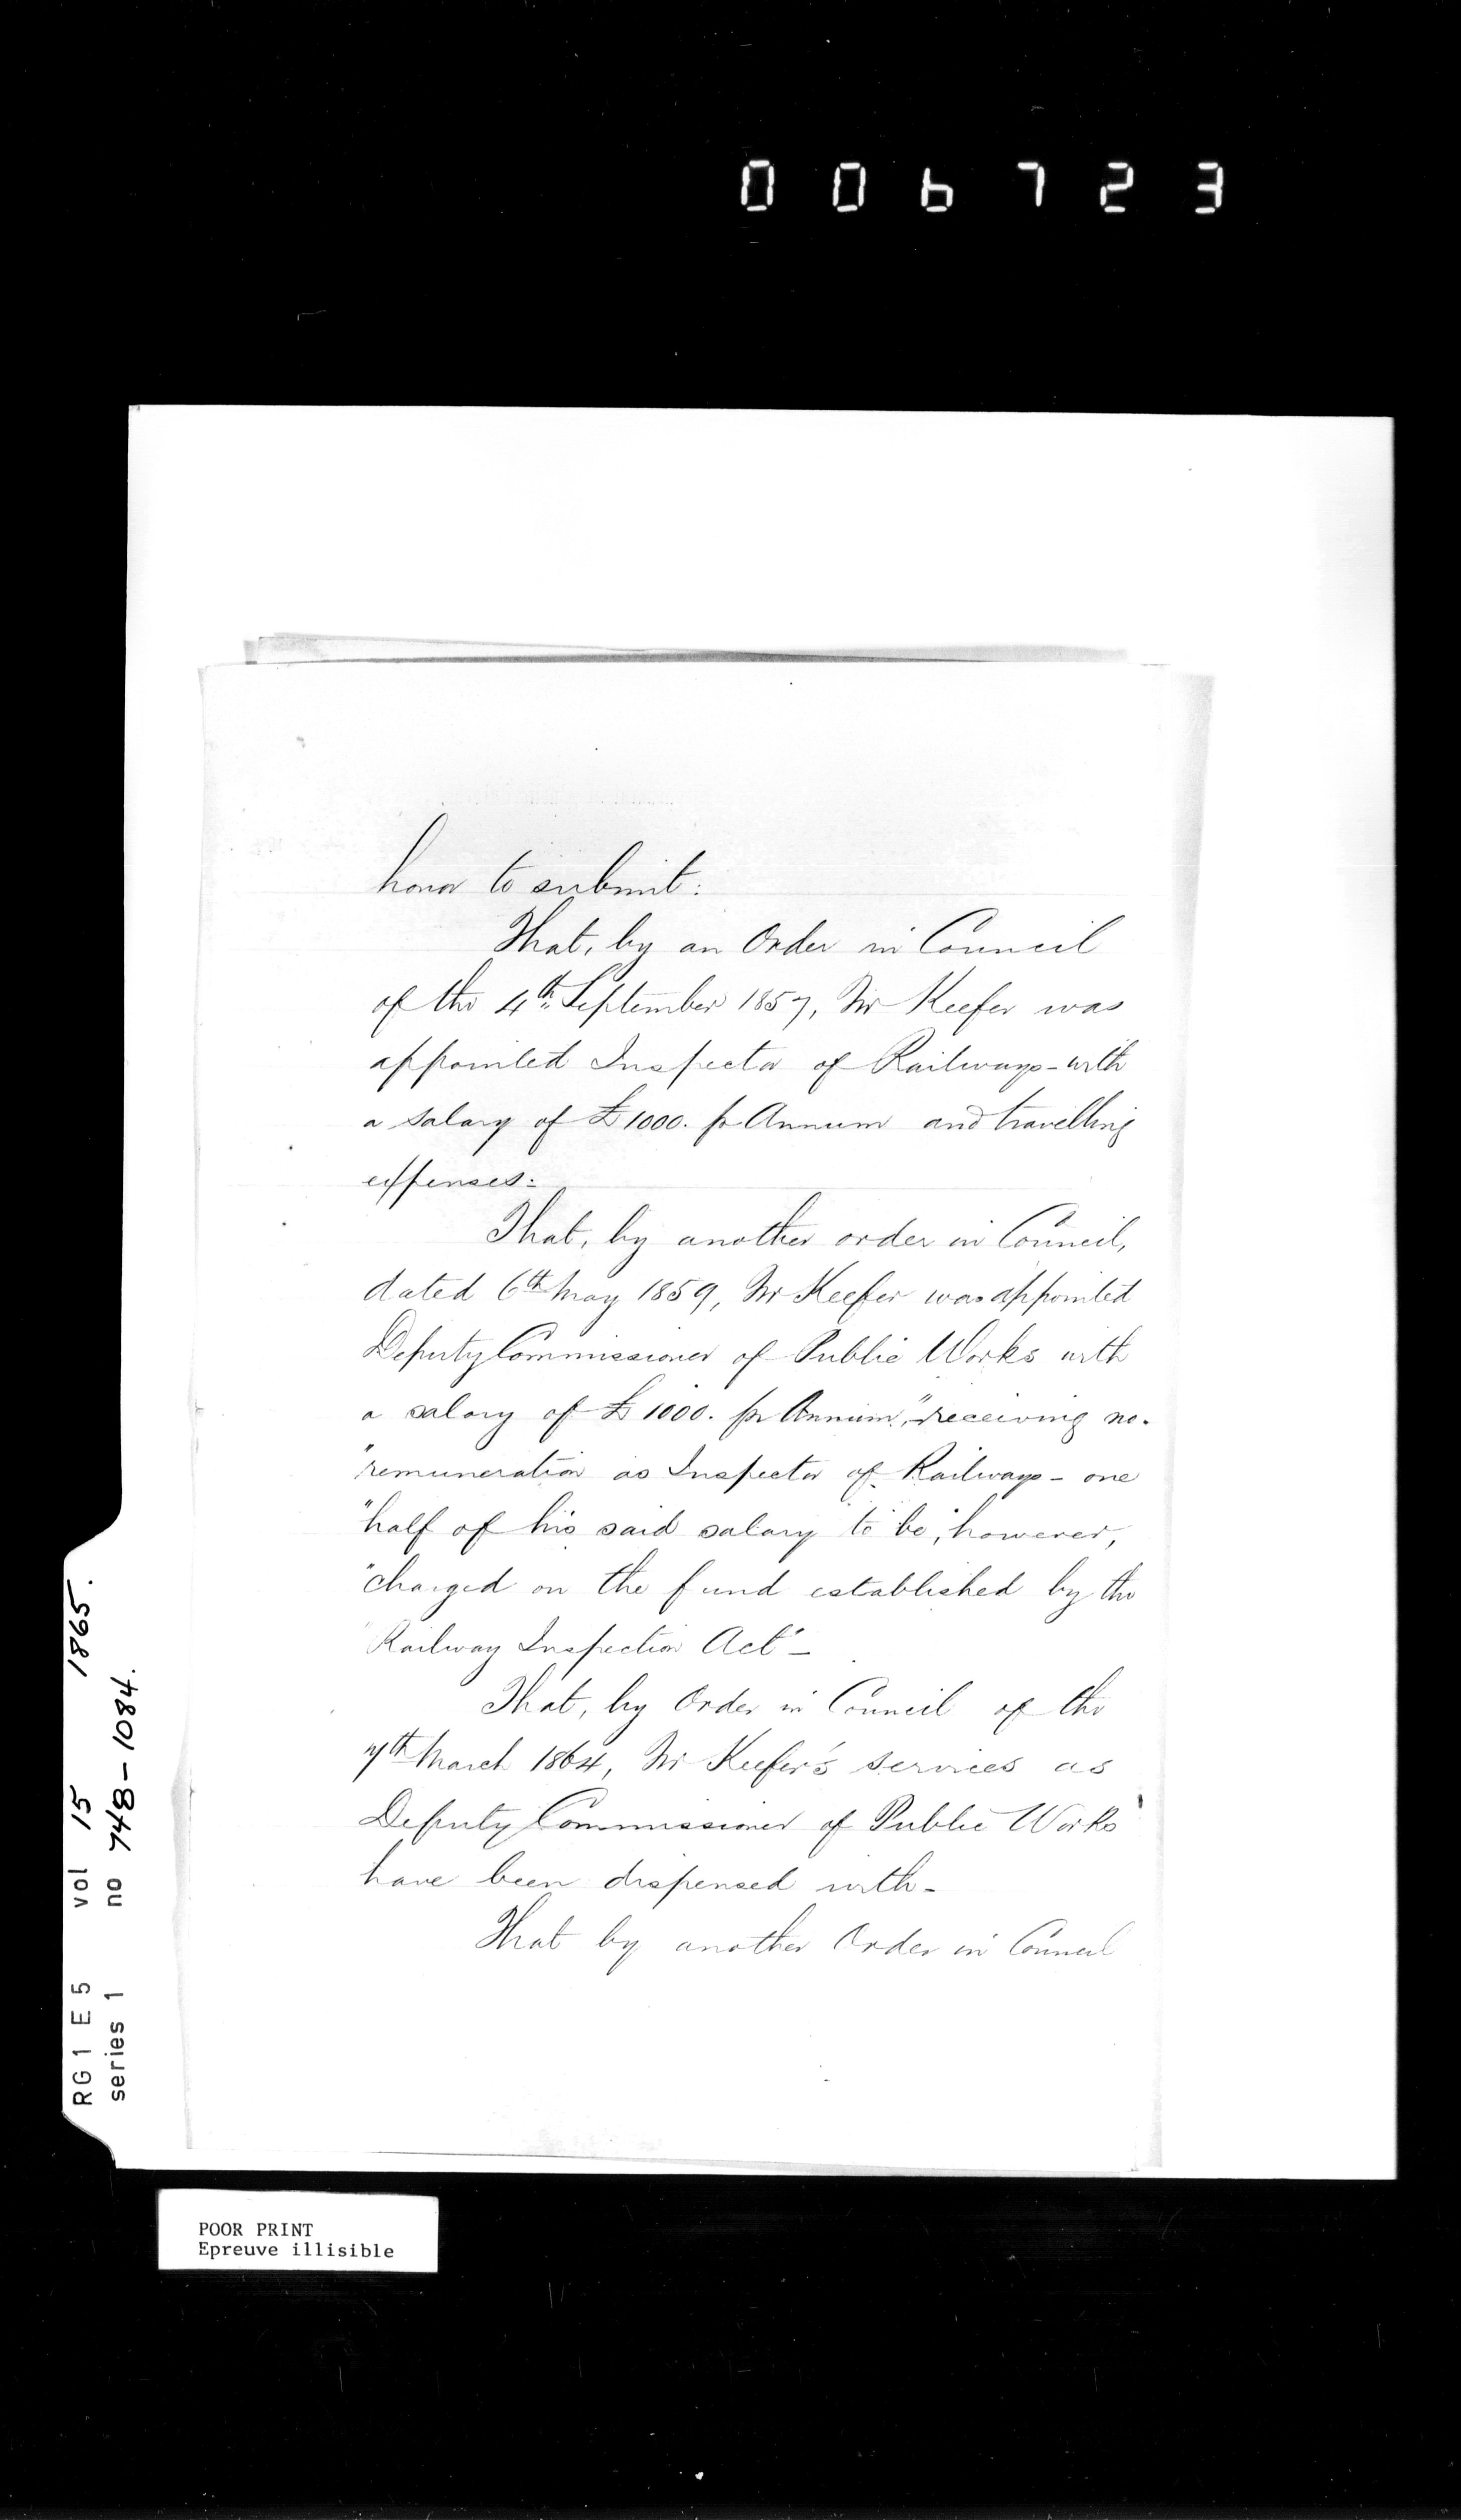 006723
honor to submit:
That, by an Order in Council
of the 4th September 1857, Mr Keefer was
appointed Inspector of Railways - with
a salary of £1000. pr Annum and travelling
expenses:
That, by another order in Council,
dated 6th May 1859, Mr Keefer was appointed
Deputy Commissioner of Public Works with
a salary of £1000. pr Annum, "receiving no
"remuneration as Inspector of Railways - one
"half of his said salary to be, however,
"charged on the fund established by the
"Railway Inspection Act" -
That, by Order in Council of the
7th March 1864, Mr Keefer's services as
Deputy Commissioner of Public Works
have been dispensed with -
That by another Order in Council
RG1 E5 vol 15 1865.
series 1 no 748-1084.
POOR PRINT
Epreuve illisible